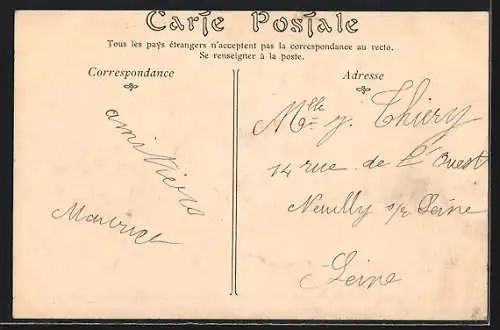 Carte Postale
Tous les pays étrangers n'acceptent pas la correspondance au recto.
Se renseigner à la poste.
Correspondance
Adresse
amitiés
Maurice
Mlle y. Thiery
14 rue de l'Ouest
Neuilly s/r Seine
Seine